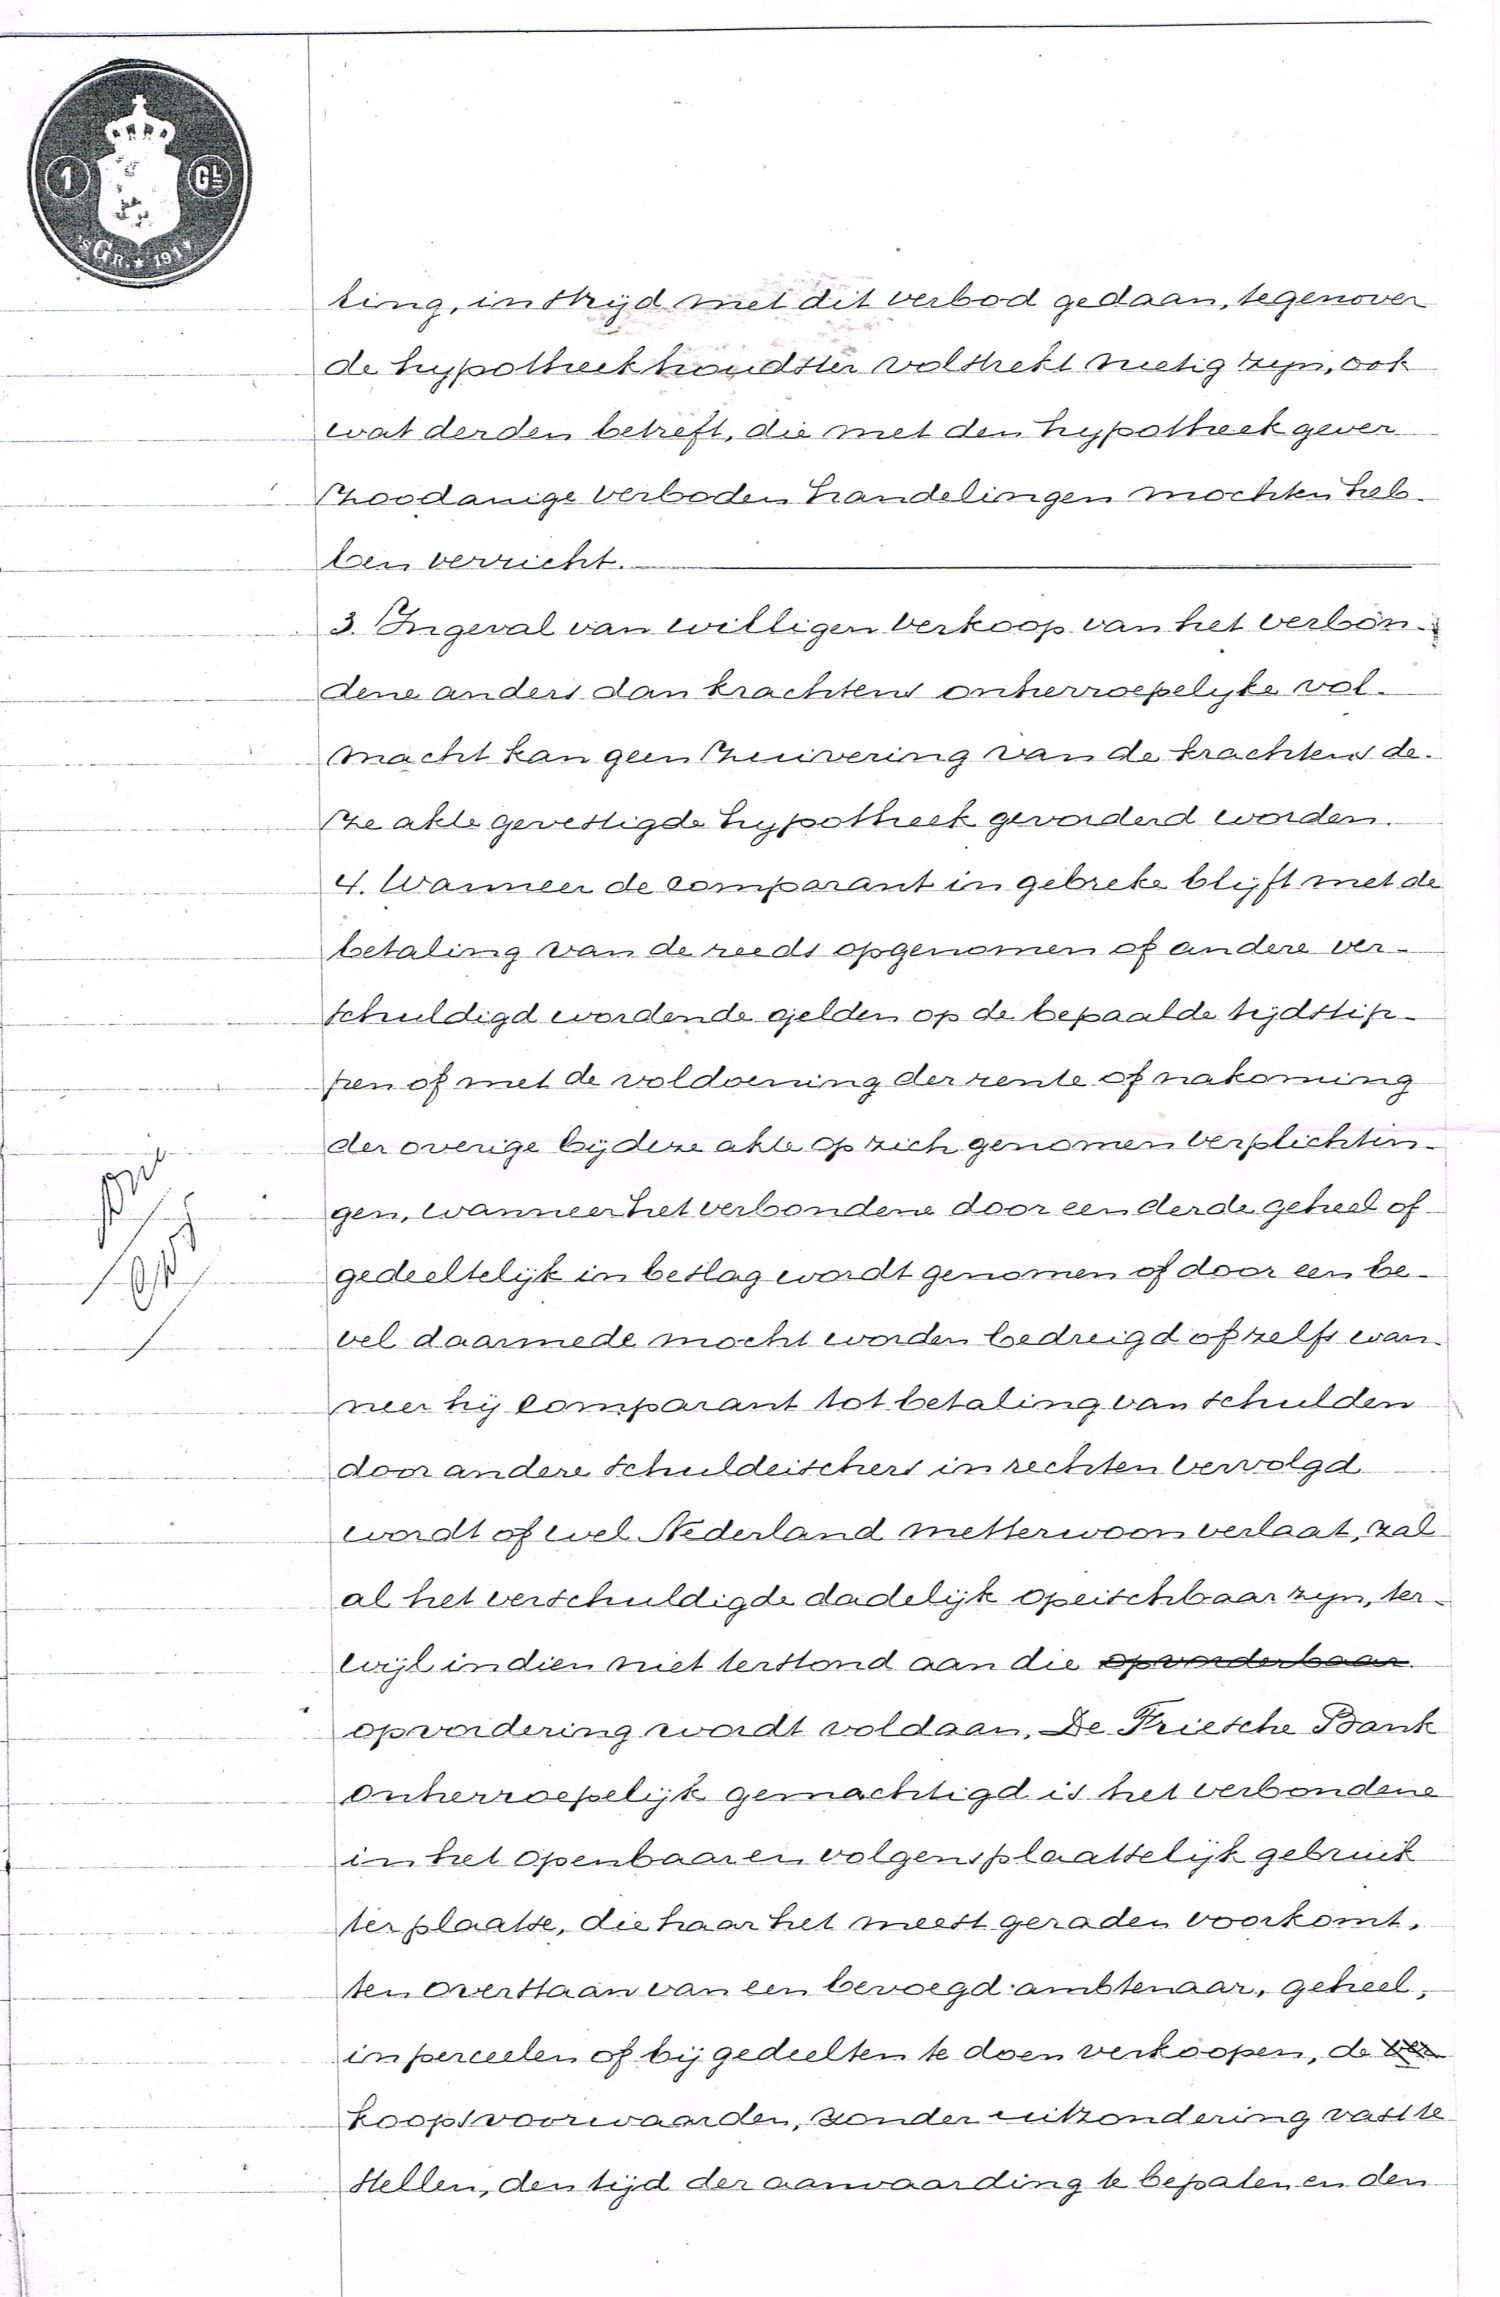 1 GL
'sGr. * 191
ling, in strijd met dit verbod gedaan, tegenover
de hypotheekhoudster volstrekt nietig zijn, ook
wat derden betreft, die met den hypotheekgever
zoodanige verboden handelingen mochten heb-
ben verricht.
3. Ingeval van willigen verkoop van het verbon-
dene anders dan krachtens onherroepelijke vol-
macht kan geen zuivering van de krachtens de-
ze akte gevestigde hypotheek gevorderd worden.
4. Wanneer de comparant in gebreke blijft met de
betaling van de reeds opgenomen of andere ver-
schuldigd wordende gelden op de bepaalde tijdstip-
pen of met de voldoening der rente of nakoming
der overige bij deze akte op zich genomen verplichtin-
gen, wanneer het verbondene door een derde geheel of
gedeeltelijk in beslag wordt genomen of door een be-
vel daarmede mocht worden bedreigd of zelfs wan-
neer hij comparant tot betaling van schulden
door andere schuldeischers in rechten vervolgd
wordt of wel Nederland metterwoon verlaat, zal
al het verschuldigde dadelijk opeischbaar zijn, ter-
wijl indien niet terstond aan die opvorderbaar
opvordering wordt voldaan, De Friesche Bank
onherroepelijk gemachtigd is het verbondene
in het openbaar en volgens plaatselijk gebruik
ter plaatse, die haar het meest geraden voorkomt,
ten overstaan van een bevoegd ambtenaar, geheel,
in perceelen of bij gedeelten te doen verkoopen, de ver
koopsvoorwaarden, zonder uitzondering vast te
stellen, den tijd der aanvaarding te bepalen en den